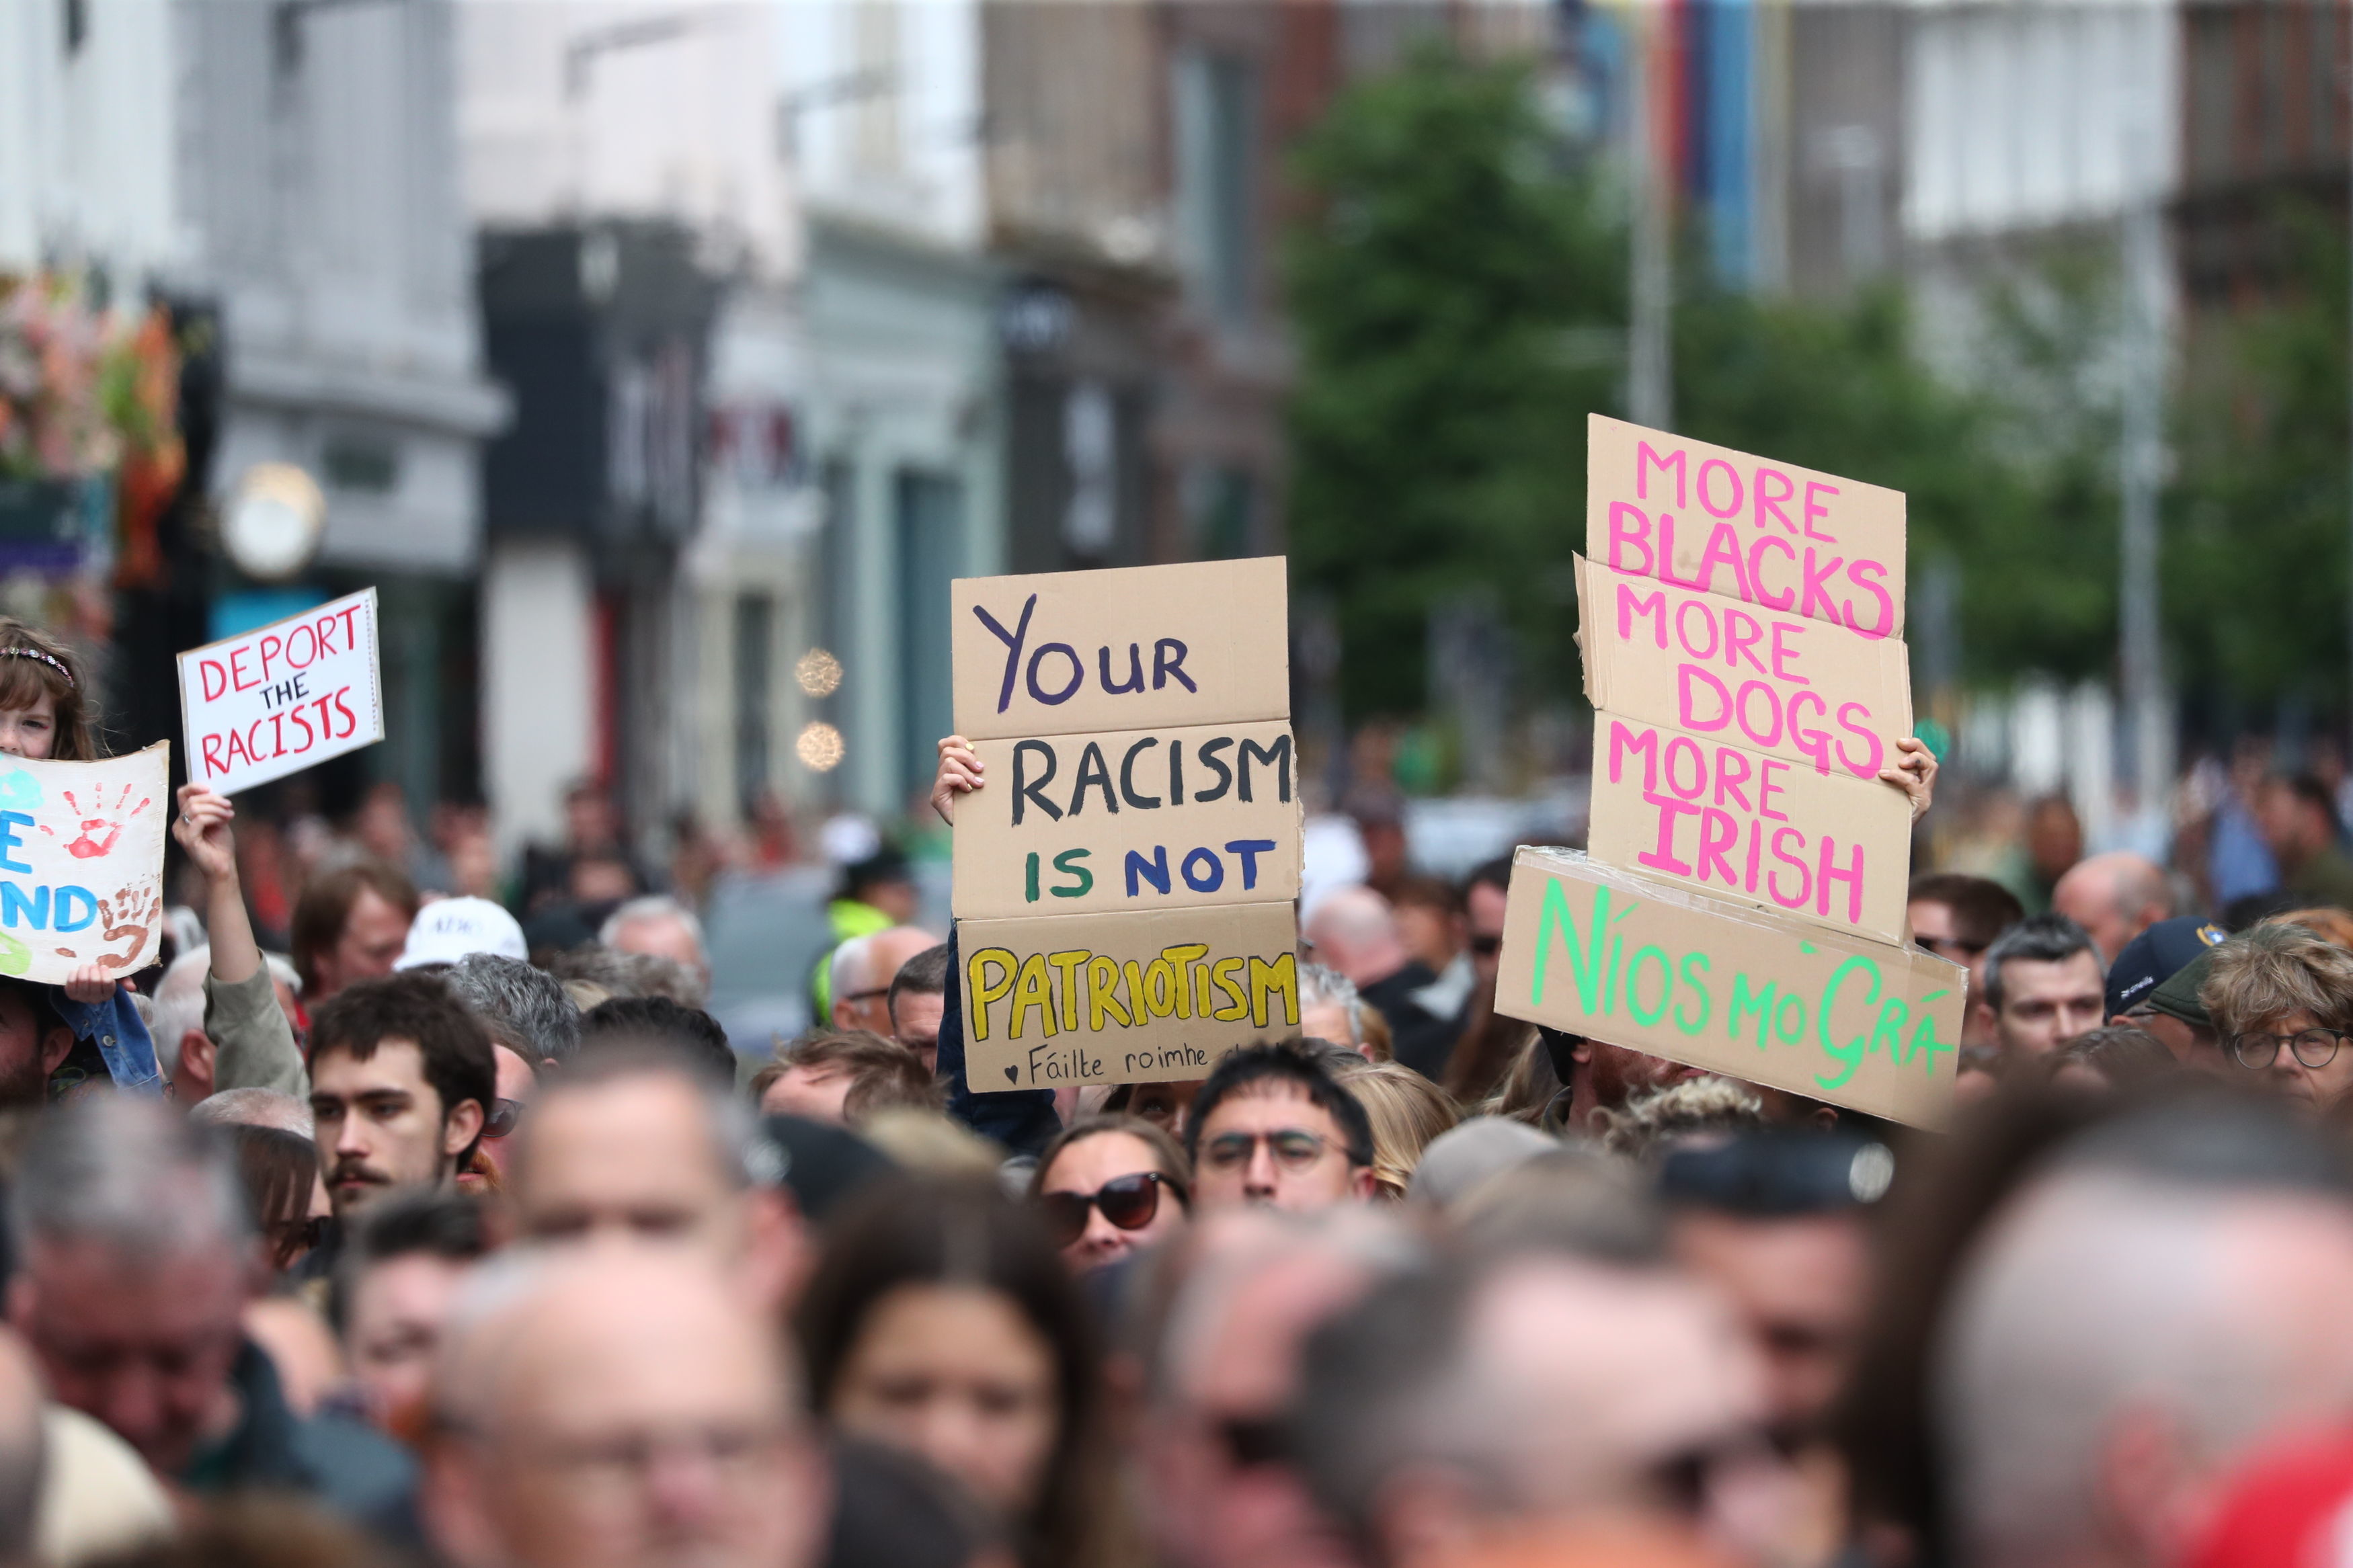 DEPORT
THE
RACISTS
E
ND
YOUR
RACISM
IS NOT
PATRIOTISM
♥ Fáilte roimhe
MORE
BLACKS
MORE
DOGS
MORE
IRISH
NÍOS MÓ GRÁ